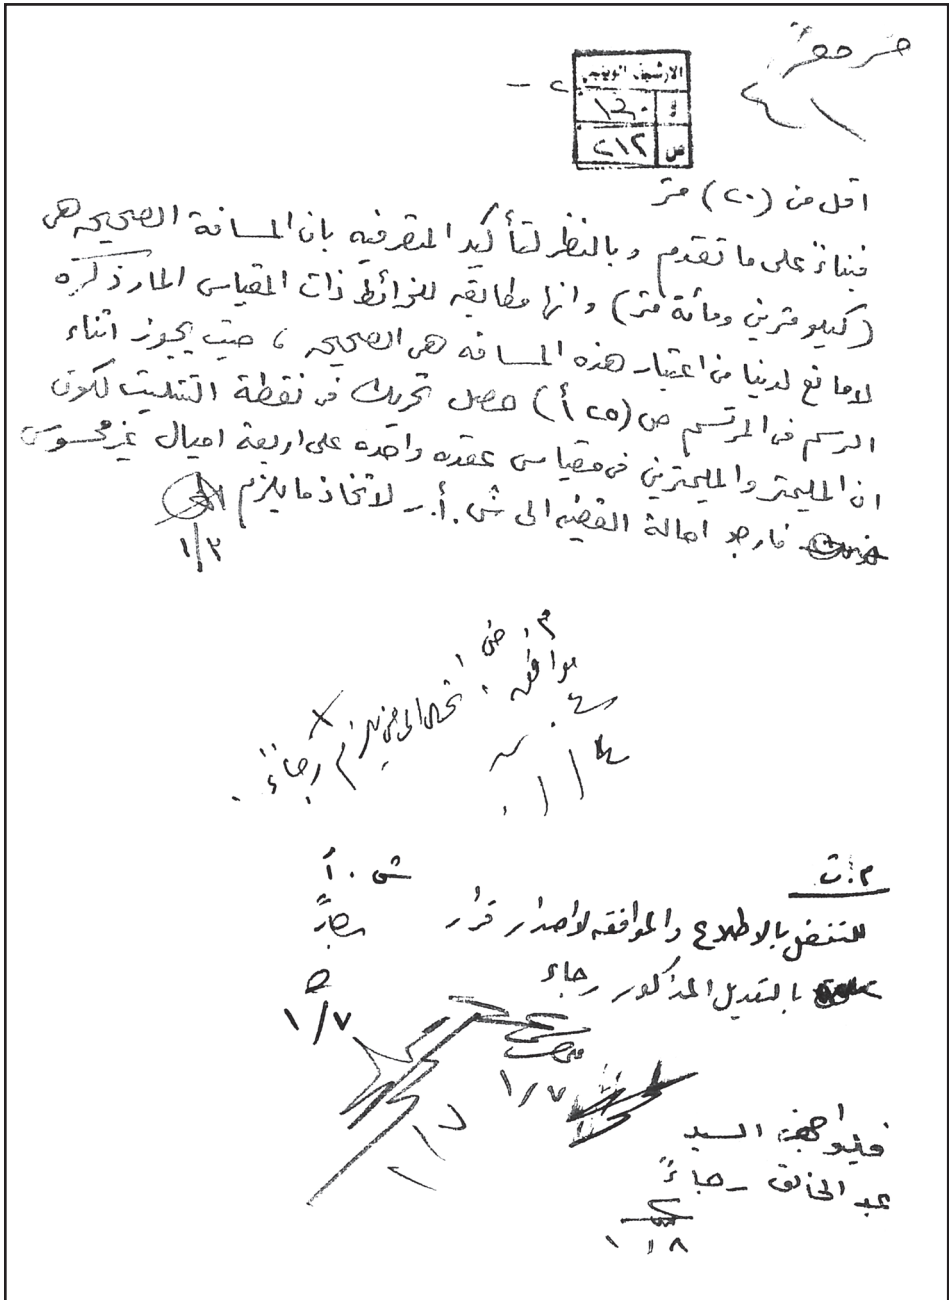 - ٢ -
الارشيف الوثيقي
و ١٣٠
ص ٢١٢
اقل من (٢٠) متر
فبناءً على ما تقدم وبالنظر لتأكيد المتصرفيه بان المسافة الصحيحه هي
(كيلو مترين ومائة متر) وانها مطابقه للخرائط ذات المقياس المار ذكره
لا مانع لدينا من اعتبار هذه المسافه هي الصحيحه ، حيث يجوز اثناء
الرسم في المرتسم ص (٢٥ أ) حصل تحريك في نقطة التثليث لكون
ان المليمتر والمليمترين في مقياس عقده واحده على اربعة اميال غير محسوس
فارجو احالة القضيه الى ش.أ. لاتخاذ ما يلزم
١/٣
موافق . تحال الى من يلزم رجاءً
م.ت
ش.أ
للتفضل بالاطلاع والموافقه لاصدار قرار
بالتعديل المذكور رجاء
١/٧
١/٧
السيد
عبد الخالق رجاءً
١/٨